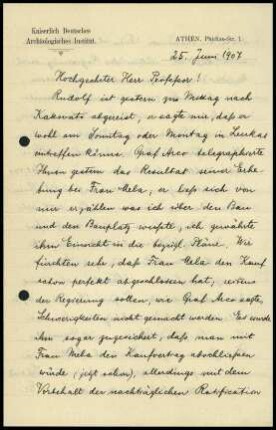 Kaiserlich Deutsches
Archäologisches Institut.
ATHEN, Phidias-Str. 1.
25. Juni 1907
Hochgeehrter Herr Professor!
Rudolf ist gestern zu Mittag nach
Kakovato abgereist, er sagte mir, dass er
wohl am Sonntag oder Montag in Leukas
eintreffen könne. Graf Arco telegraphierte
Ihnen gestern das Resultat seiner
bei Frau Mela, er liess sich von
mir erzählen was ich über den Bau
und den Bauplatz wusste, ich gewährte
ihm Einsicht in die bezügl. Pläne. Wir
fürchten sehr, dass Frau Mela den Kauf
schon perfekt abgeschlossen hat; seitens
der Regierung sollen, wie Graf Arco sagte,
Schwierigkeiten nicht gemacht werden. Es wurde
ihm sogar zugesichert, dass man mit
Frau Mela den Kaufvertrag abschließen
würde (jetzt schon), allerdings mit dem
Vorbehalt der nachträglichen Ratification